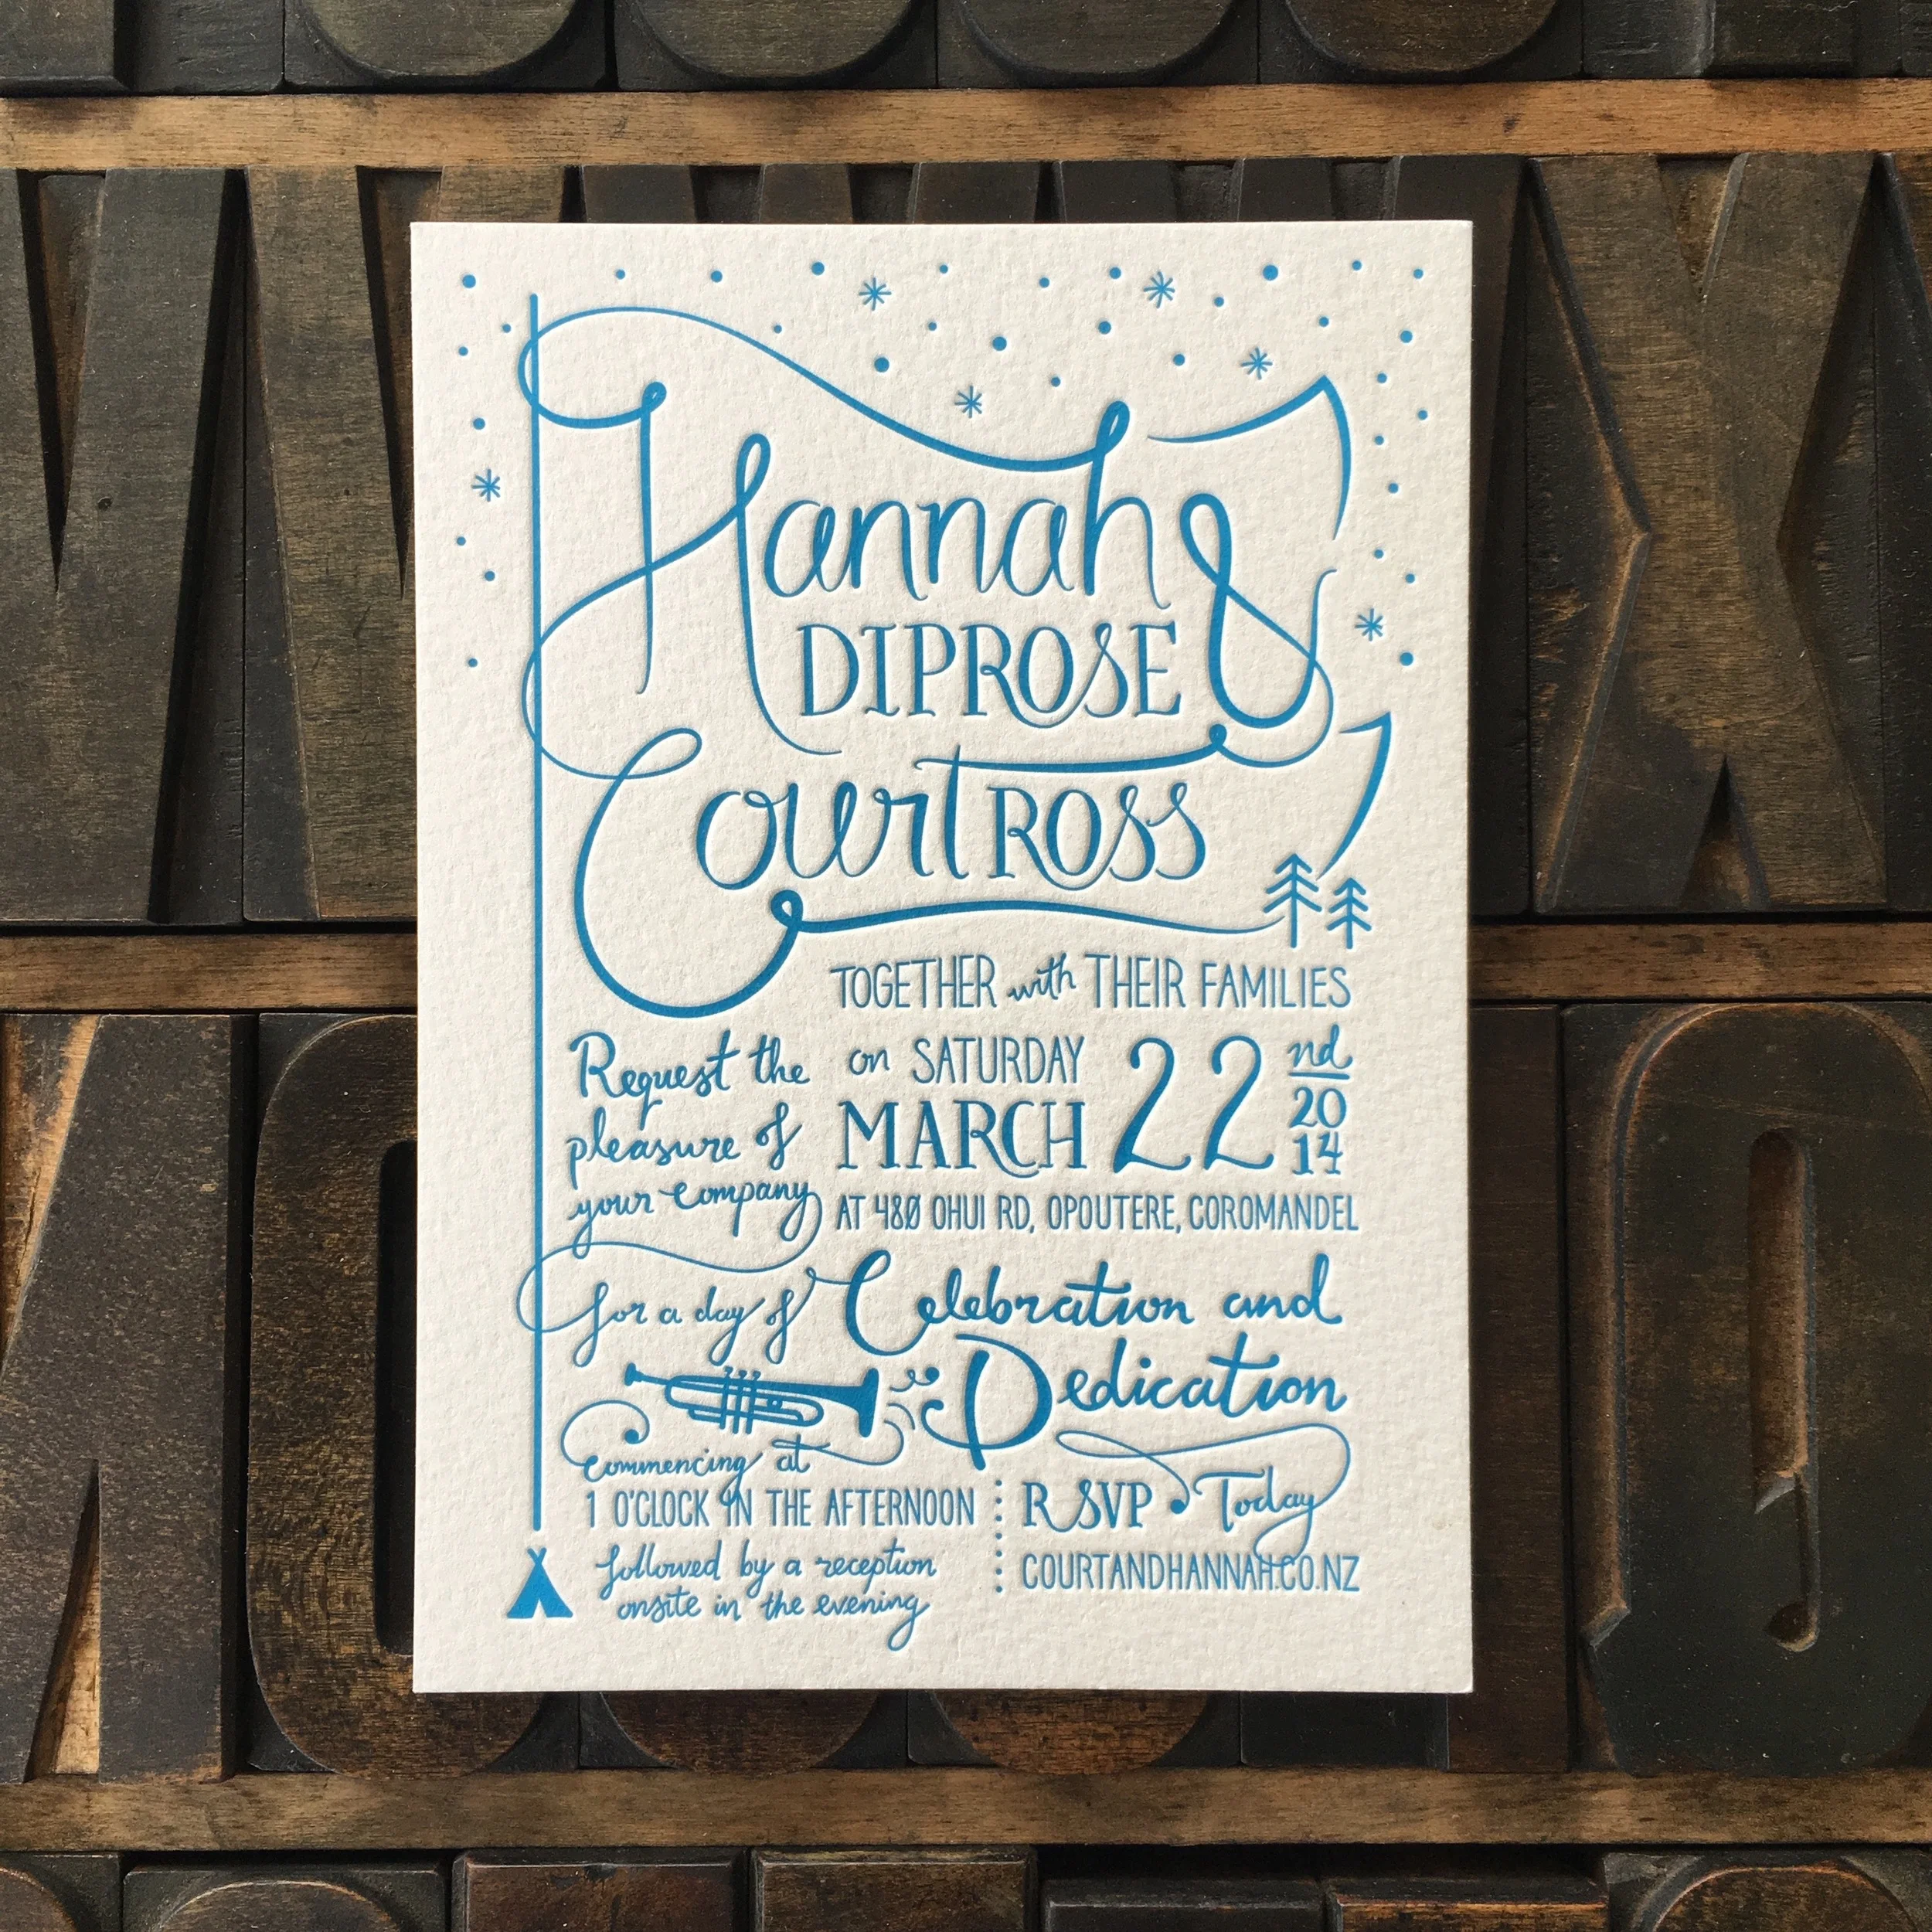 Hannah &
DIPROSE
Court ROSS
TOGETHER with THEIR FAMILIES
Request the
pleasure of
your company
on SATURDAY
MARCH 22nd
20
14
AT 480 OHUI RD, OPOUTERE, COROMANDEL
for a day of Celebration and
Dedication
commencing at
1 O'CLOCK IN THE AFTERNOON
followed by a reception
onsite in the evening
RSVP Today
COURTANDHANNAH.CO.NZ